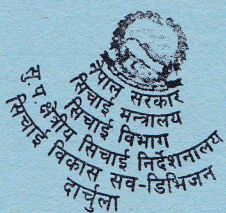 नेपाल सरकार
सिंचाई मन्त्रालय
सिंचाई विभाग
सु.प. क्षेत्रीय सिंचाई निर्देशनालय
सिंचाई विकास सव-डिभिजन
दार्चुला